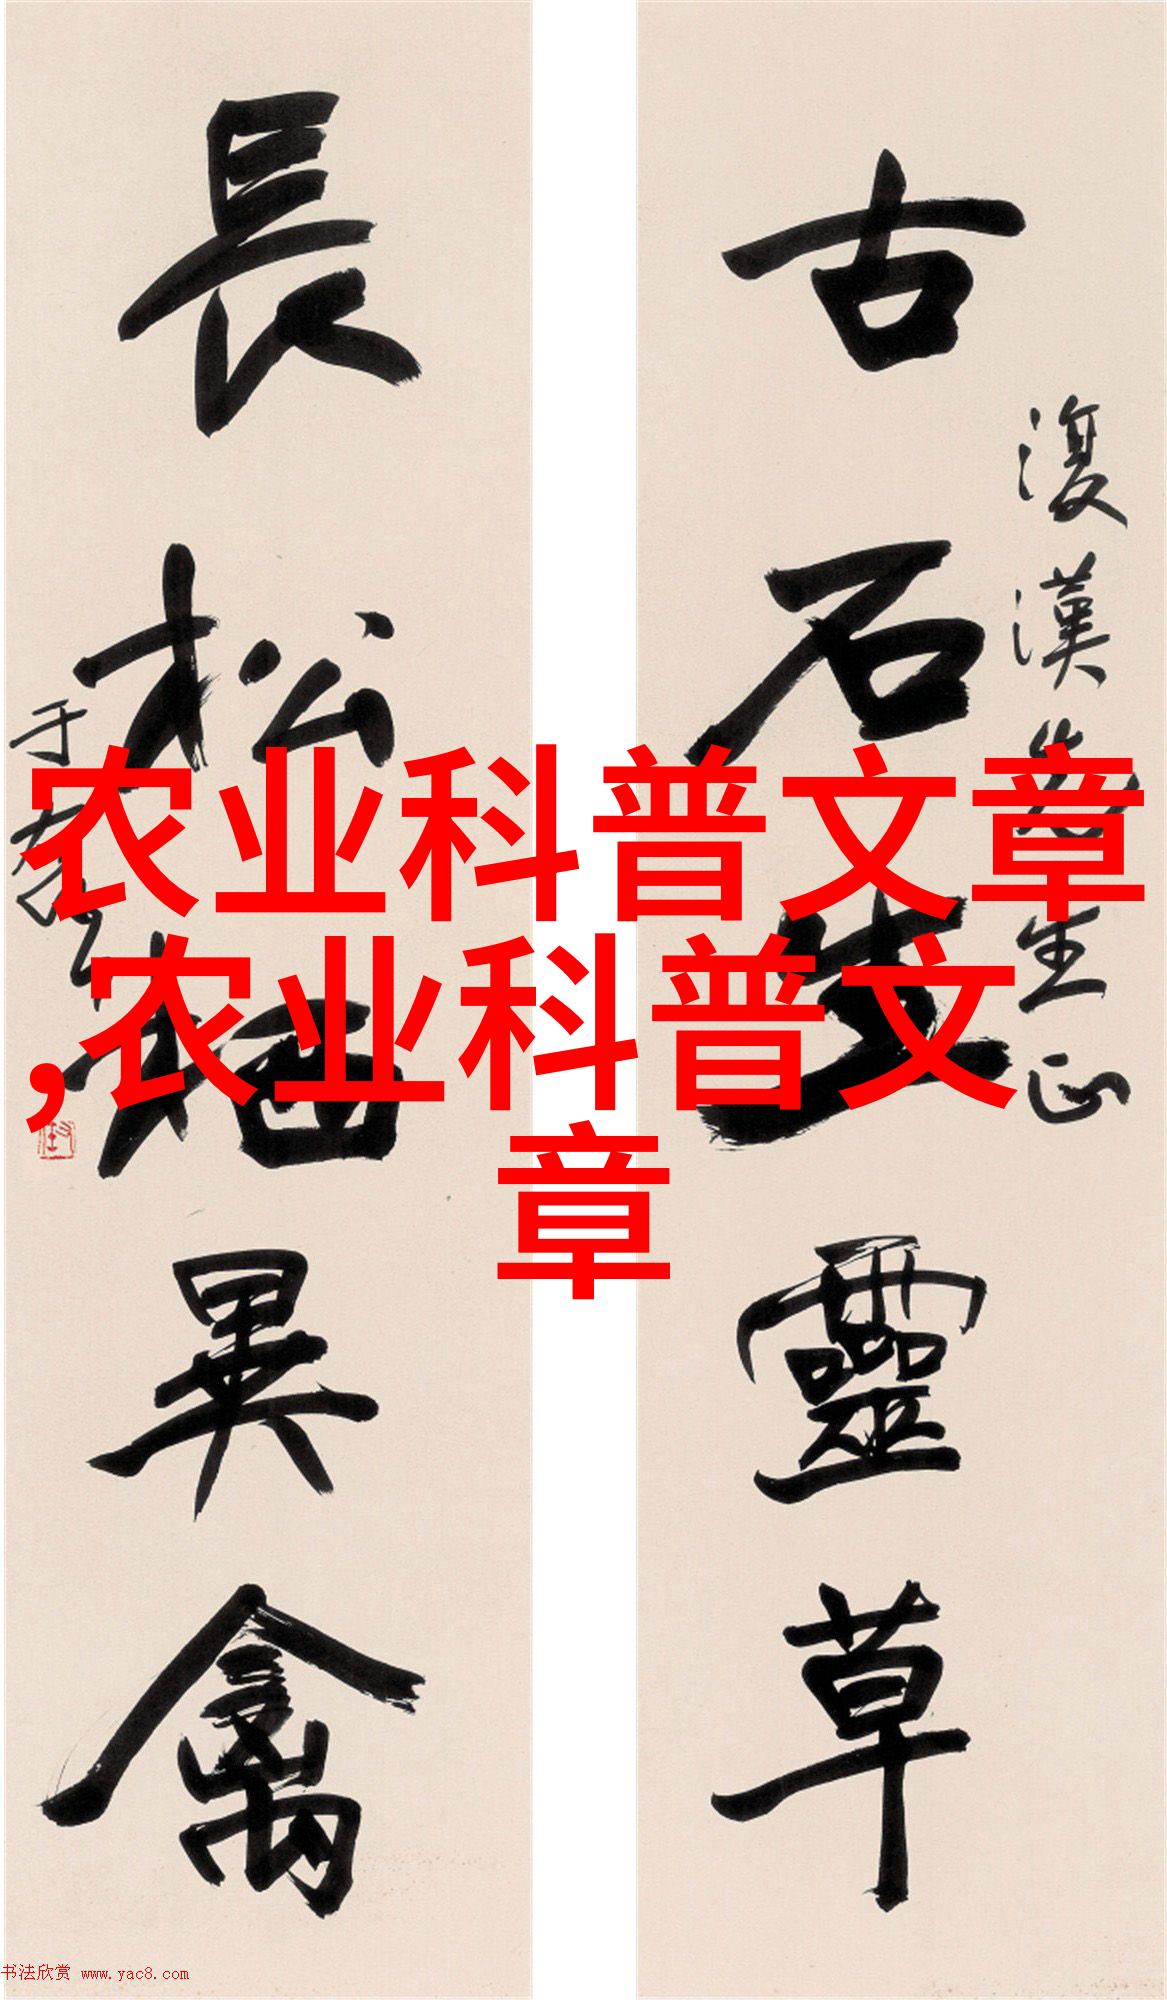 古石生靈草
復漢先生正
長松栖異禽
于右任
农业科普文章
,农业科普文
章
书法欣赏 www.yac8.com